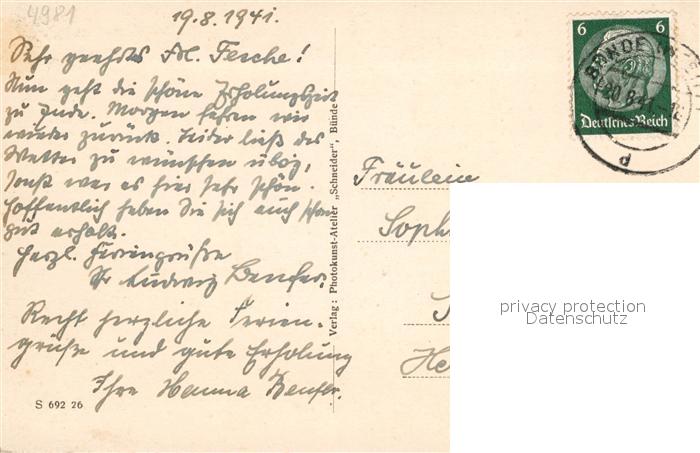 4981
19.8.1941.
Sehr geehrtes Frl. Fesche!
Nun geht die schöne Erholungszeit
zu Ende. Morgen fahren wir
wieder zurück. Leider ließ das
Wetter zu wünschen übrig,
sonst war es hier sehr schön.
Hoffentlich haben Sie sich auch schon
gut erholt.
Herzl. Feriengrüße
Ihr Ludwig
Recht herzliche Ferien-
grüße und gute Erholung
Ihre Hanna
S 692 26
Verlag: Photokunst-Atelier „Schneider", Bünde
6 6
Deutsches Reich
BÜNDE
20.8.41
d
Fräulein
Soph
He
privacy protection
Datenschutz